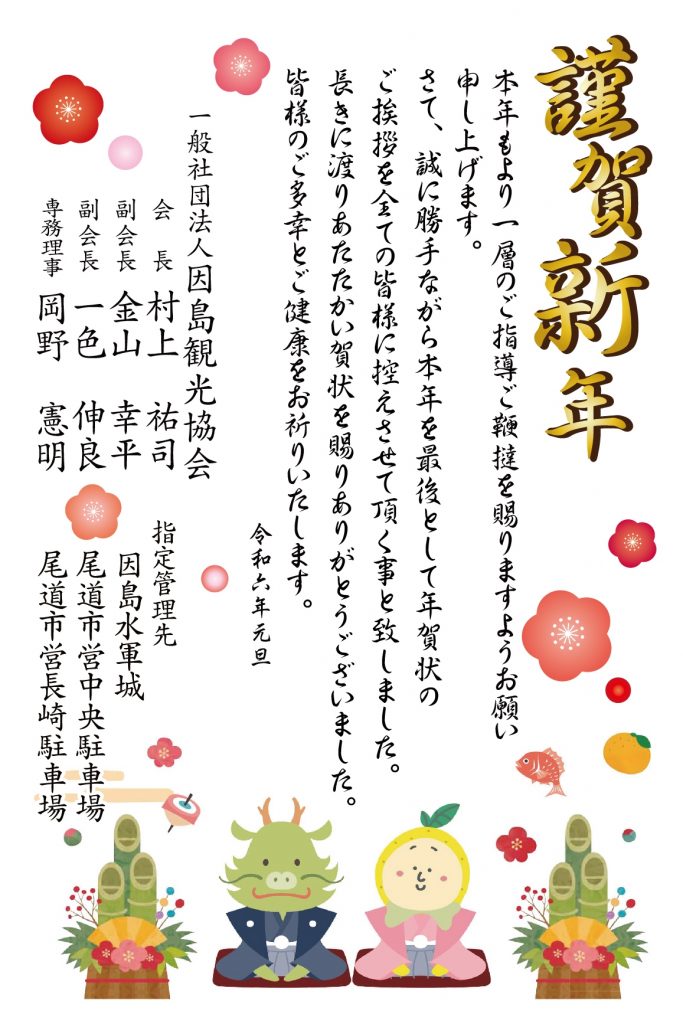 謹賀新年
本年もより一層のご指導ご鞭撻を賜りますようお願い
申し上げます。
さて、誠に勝手ながら本年を最後として年賀状の
ご挨拶を全ての皆様に控えさせて頂く事と致しました。
長きに渡りあたたかい賀状を賜りありがとうございました。
皆様のご多幸とご健康をお祈りいたします。
令和六年元旦
一般社団法人因島観光協会
会長 村上 祐司
副会長 金山 幸平
副会長 一色 伸良
専務理事 岡野 憲明
指定管理先
因島水軍城
尾道市営中央駐車場
尾道市営長崎駐車場